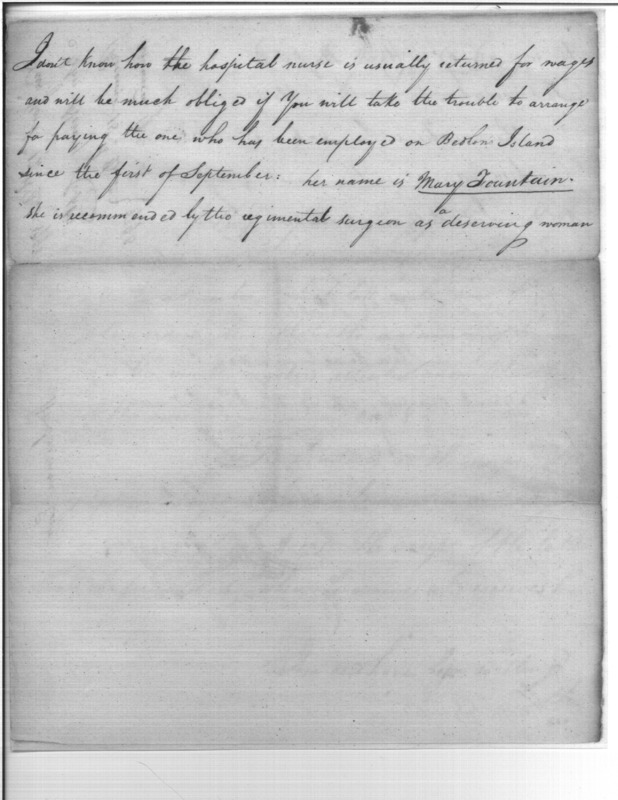 I don't know how the hospital nurse is usually returned for wages
and will be much obliged if You will take the trouble to arrange
for paying the one who has been employed on Bedlon Island
since the first of September: her name is Mary Fountain.
She is recommended by the regimental surgeon as a deserving woman